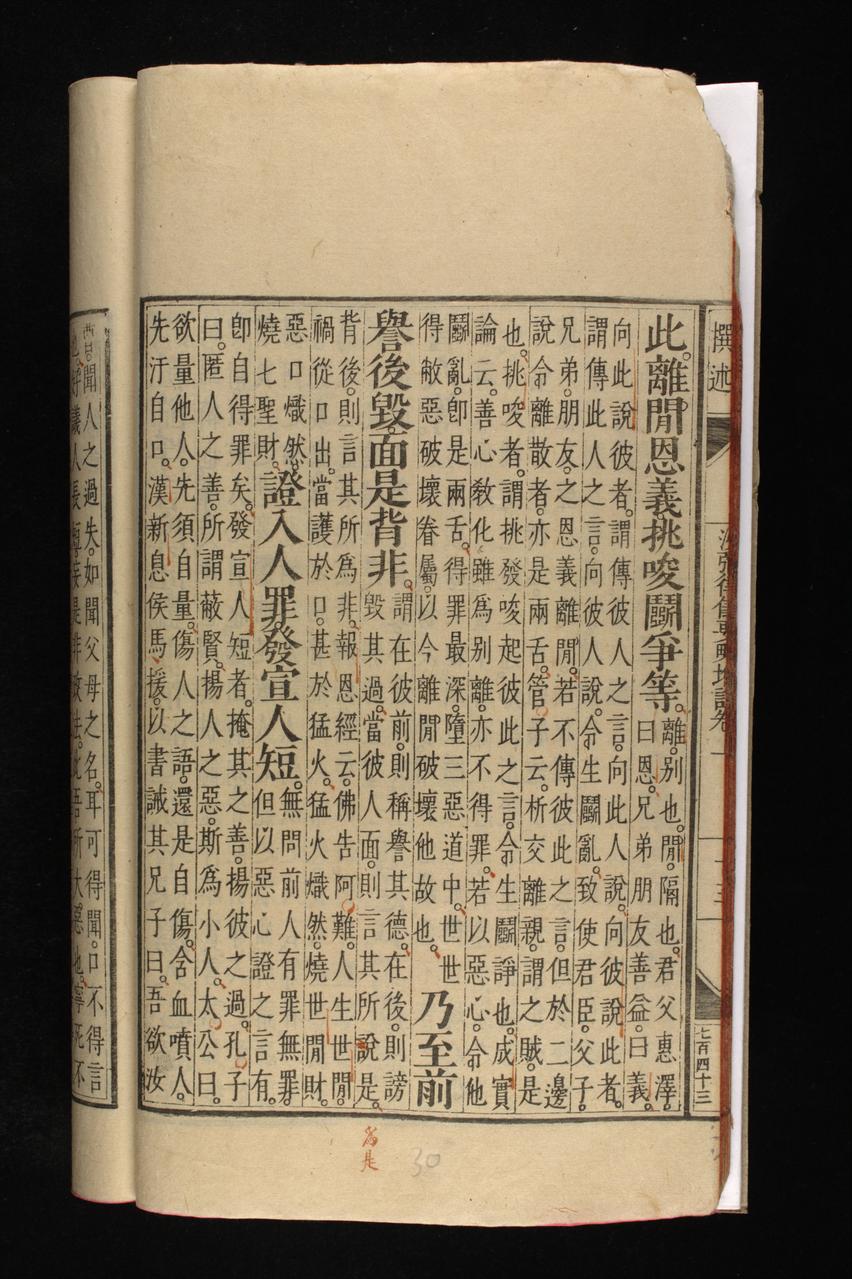 撰述
七百四十三
此。離間恩義。挑唆鬭爭等。
離。別也。間。隔也。君父惠澤。
曰恩。兄弟朋友善益。曰義。
向此說彼者。謂傳彼人之言。向此人說。向彼說此者。
謂傳此人之言。向彼人說。令生鬭亂。致使君臣。父子。
兄弟。朋友。之恩義離間。若不傳彼此之言。但於二邊
說令離散者。亦是兩舌。管子云。析交離親。謂之賊。是
也。挑唆者。謂挑發唆起彼此之言。令生鬭諍也。成實
論云。善心敎化。雖爲別離。亦不得罪。若以惡心。令他
鬭亂。卽是兩舌。得罪最深。墮三惡道中。世世
得敝惡破壞眷屬。以今離間破壞他故也。
乃至前
譽後毀。面是背非。
謂在彼前。則稱譽其德。在後。則謗
毀其過。當彼人面。則言其所說是。
背後。則言其所爲非。報恩經云。佛告阿難。人生世間。
禍從口出。當護於口。甚於猛火。猛火熾然。燒世間財。
惡口熾然。
燒七聖財。
證入人罪。發宣人短。
無問前人有罪無罪。
但以惡心證之言有。
卽自得罪矣。發宣人短者。掩其之善。揚彼之過。孔子
曰。匿人之善。所謂蔽賢。揚人之惡。斯爲小人。太公曰。
欲量他人。先須自量。傷人之語。還是自傷。含血噴人。
先汙自口。漢新息侯馬援。以書誡其兄子曰。吾欲汝
曹。聞人之過失。如聞父母之名。耳可得聞。口不得言
吾所大惡也。寧死不
爲是
30